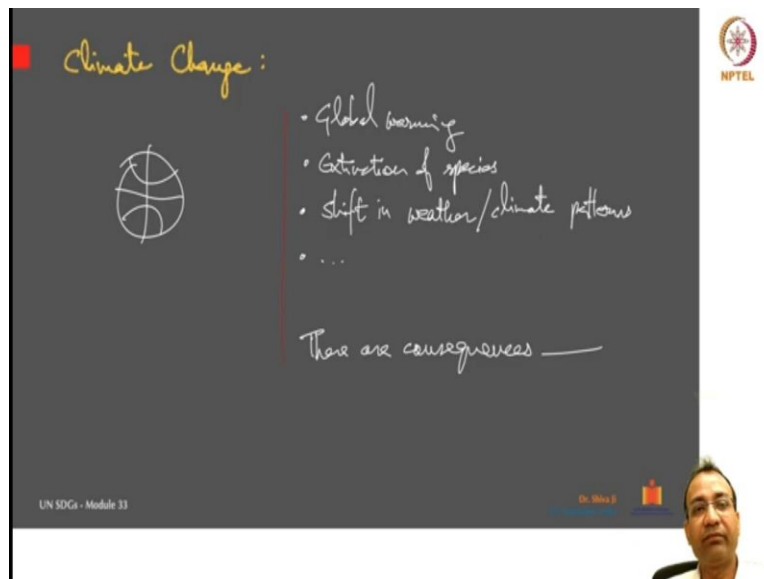 Climate Change :
NPTEL
• Global warming
• Extinction of species
• Shift in weather/climate patterns
• ...
There are consequences
UN SDGs - Module 33
Dr. Shiva Ji